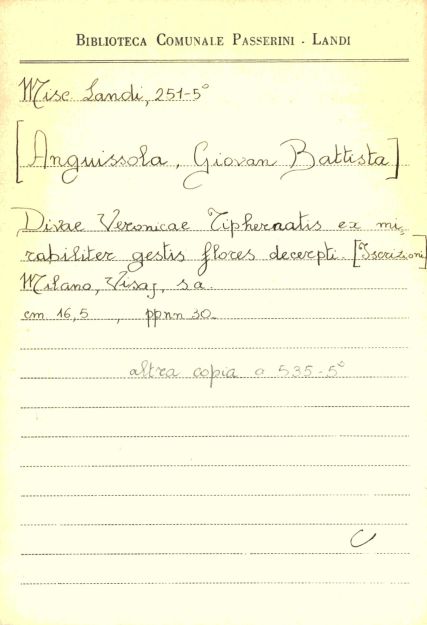 BIBLIOTECA COMUNALE PASSERINI - LANDI
Misc. Landi, 251-5°
[Anguissola, Giovan Battista]
Divae Veronicae Tiphernatis ex mi-
rabiliter gestis flores decerpti. [Iscrizioni]
Milano, Visaj, s.a.
cm 16,5 , ppnn 30.
altra copia a 535-5°
C